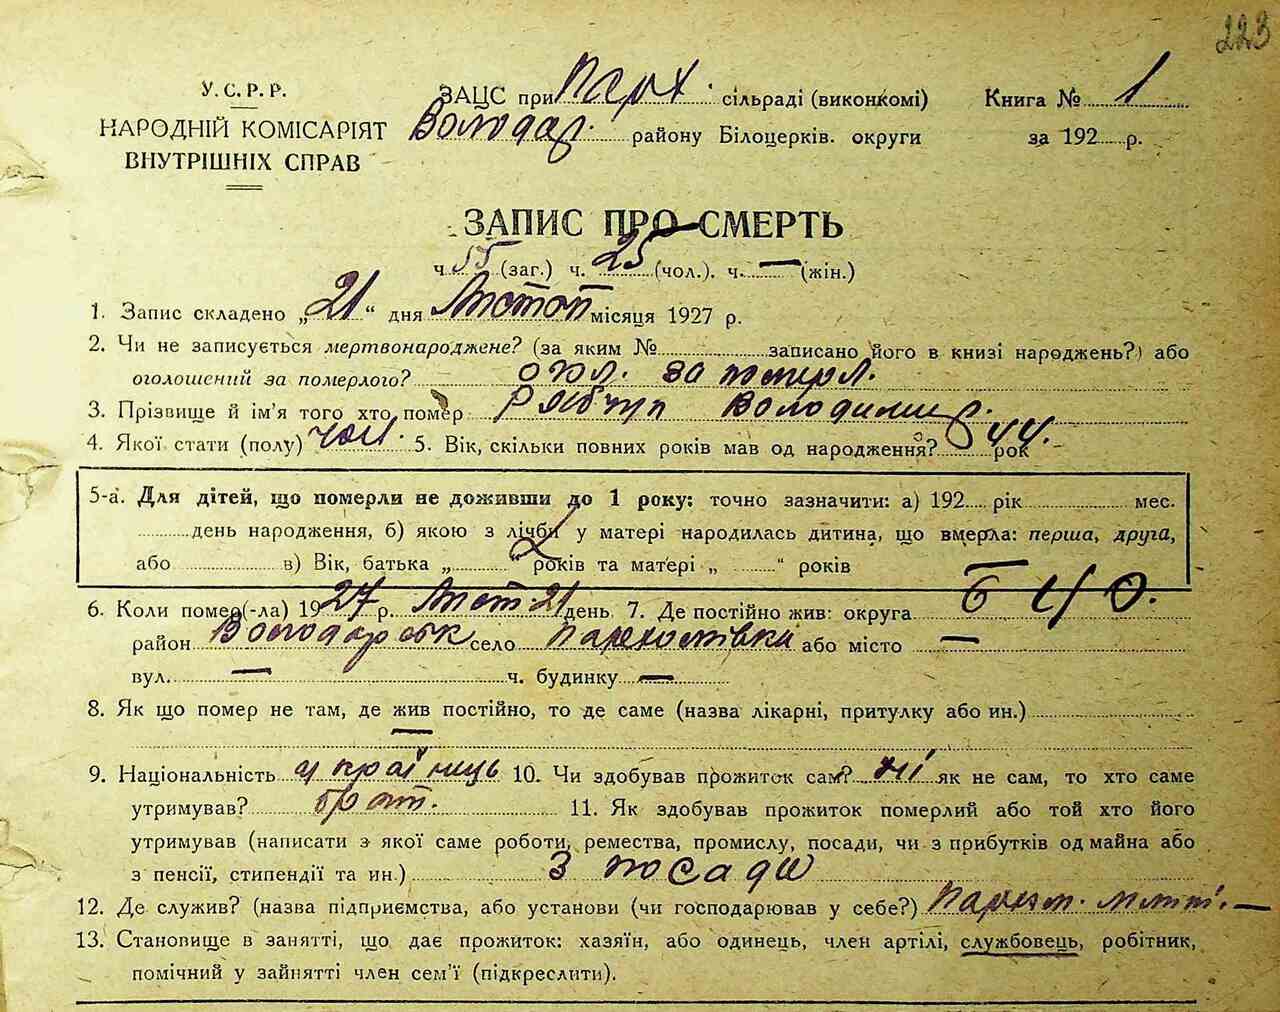 223
У.С.Р.Р.
НАРОДНІЙ КОМІСАРІЯТ
ВНУТРІШНІХ СПРАВ
ЗАЦС при Парх. сільраді (виконкомі)
Володар. району Білоцерків. округи
Книга № 1
за 192 р.
ЗАПИС ПРО СМЕРТЬ
ч. 55 (заг.) ч. 25 (чол.). ч. — (жін.)
1. Запис складено „21“ дня Листоп місяця 1927 р.
2. Чи не записується мертвонароджене? (за яким № записано його в книзі народжень?) або
оголошений за померлого? огол. за померл.
3. Прізвище й ім'я того хто помер Рябчун Володимир.
4. Якої стати (полу) чол. 5. Вік, скільки повних років мав од народження? 44. рок
5-а. Для дітей, що померли не доживши до 1 року: точно зазначити: а) 192 рік мес.
день народження, б) якою з лічби у матері народилась дитина, що вмерла: перша, друга,
або в) Вік, батька „ “ років та матері „ “ років
6. Коли помер(-ла) 1927 р. Лист 21 день. 7. Де постійно жив: округа Б Ц О.
район Володарськ село Пархомівка або місто —
вул. — ч. будинку —
8. Як що помер не там, де жив постійно, то де саме (назва лікарні, притулку або ин.)
—
9. Національність українець 10. Чи здобував прожиток сам? ні як не сам, то хто саме
утримував? брат. 11. Як здобував прожиток померлий або той хто його
утримував (написати з якої саме роботи, ремества, промислу, посади, чи з прибутків од майна або
з пенсії, стипендії та ин.) З посади
12. Де служив? (назва підприємства, або установи (чи господарював у себе?) —
13. Становище в занятті, що дає прожиток: хазяїн, або одинець, член артілі, службовець, робітник,
помічний у зайнятті член сем'ї (підкреслити).